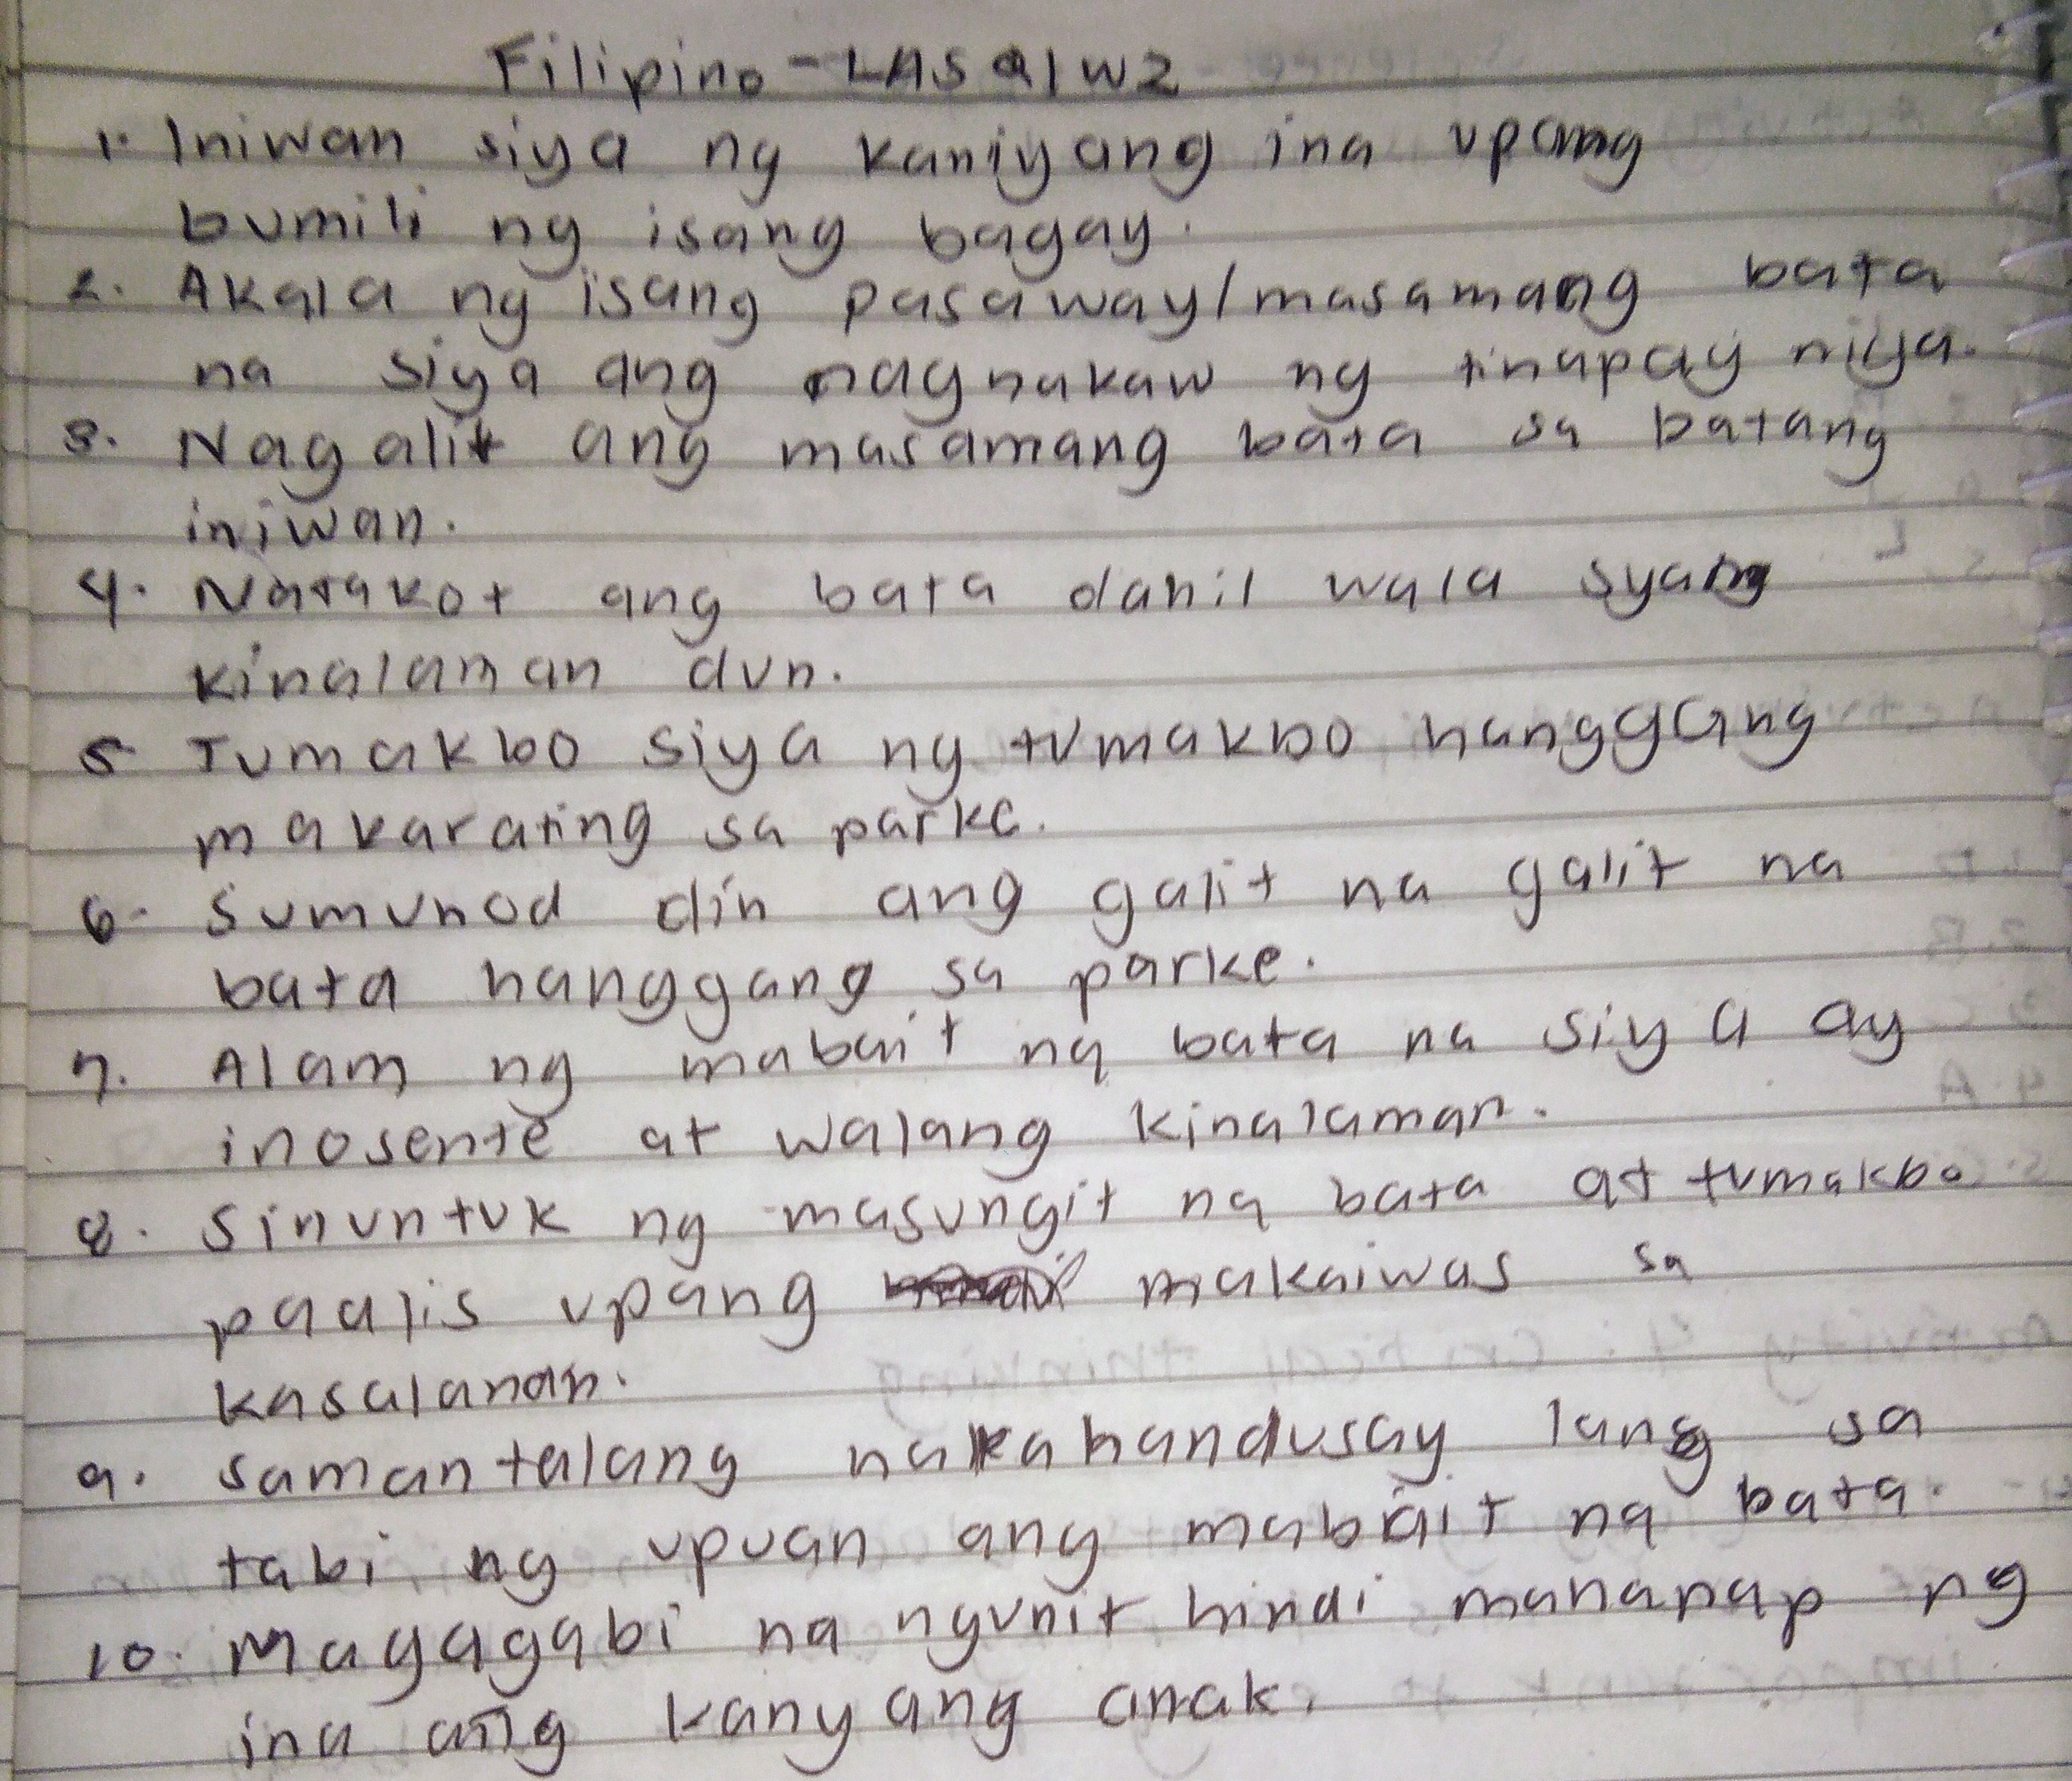 Filipino - LAS Q1 W2
1. Iniwan siya ng kaniyang ina upang
bumili ng isang bagay.
2. Akala ng isang pasaway/masamang bata
na siya ang nagnakaw ng tinapay niya.
3. Nagalit ang masamang bata sa batang
iniwan.
4. Natakot ang bata dahil wala syang
kinalaman dun.
5 Tumakbo siya ng tumakbo hanggang
makarating sa parke.
6. Sumunod din ang galit na galit na
bata hanggang sa parke.
7. Alam ng mabait na bata na siya ay
inosente at walang kinalaman.
8. Sinuntuk ng masungit na bata at tumakbo
paalis upang makaiwas sa
kasalanan.
9. Samantalang nakahandusay lang sa
tabi ng upuan ang mabait na bata.
10. Magagabi na ngunit hindi mahanap ng
ina ang kanyang anak.